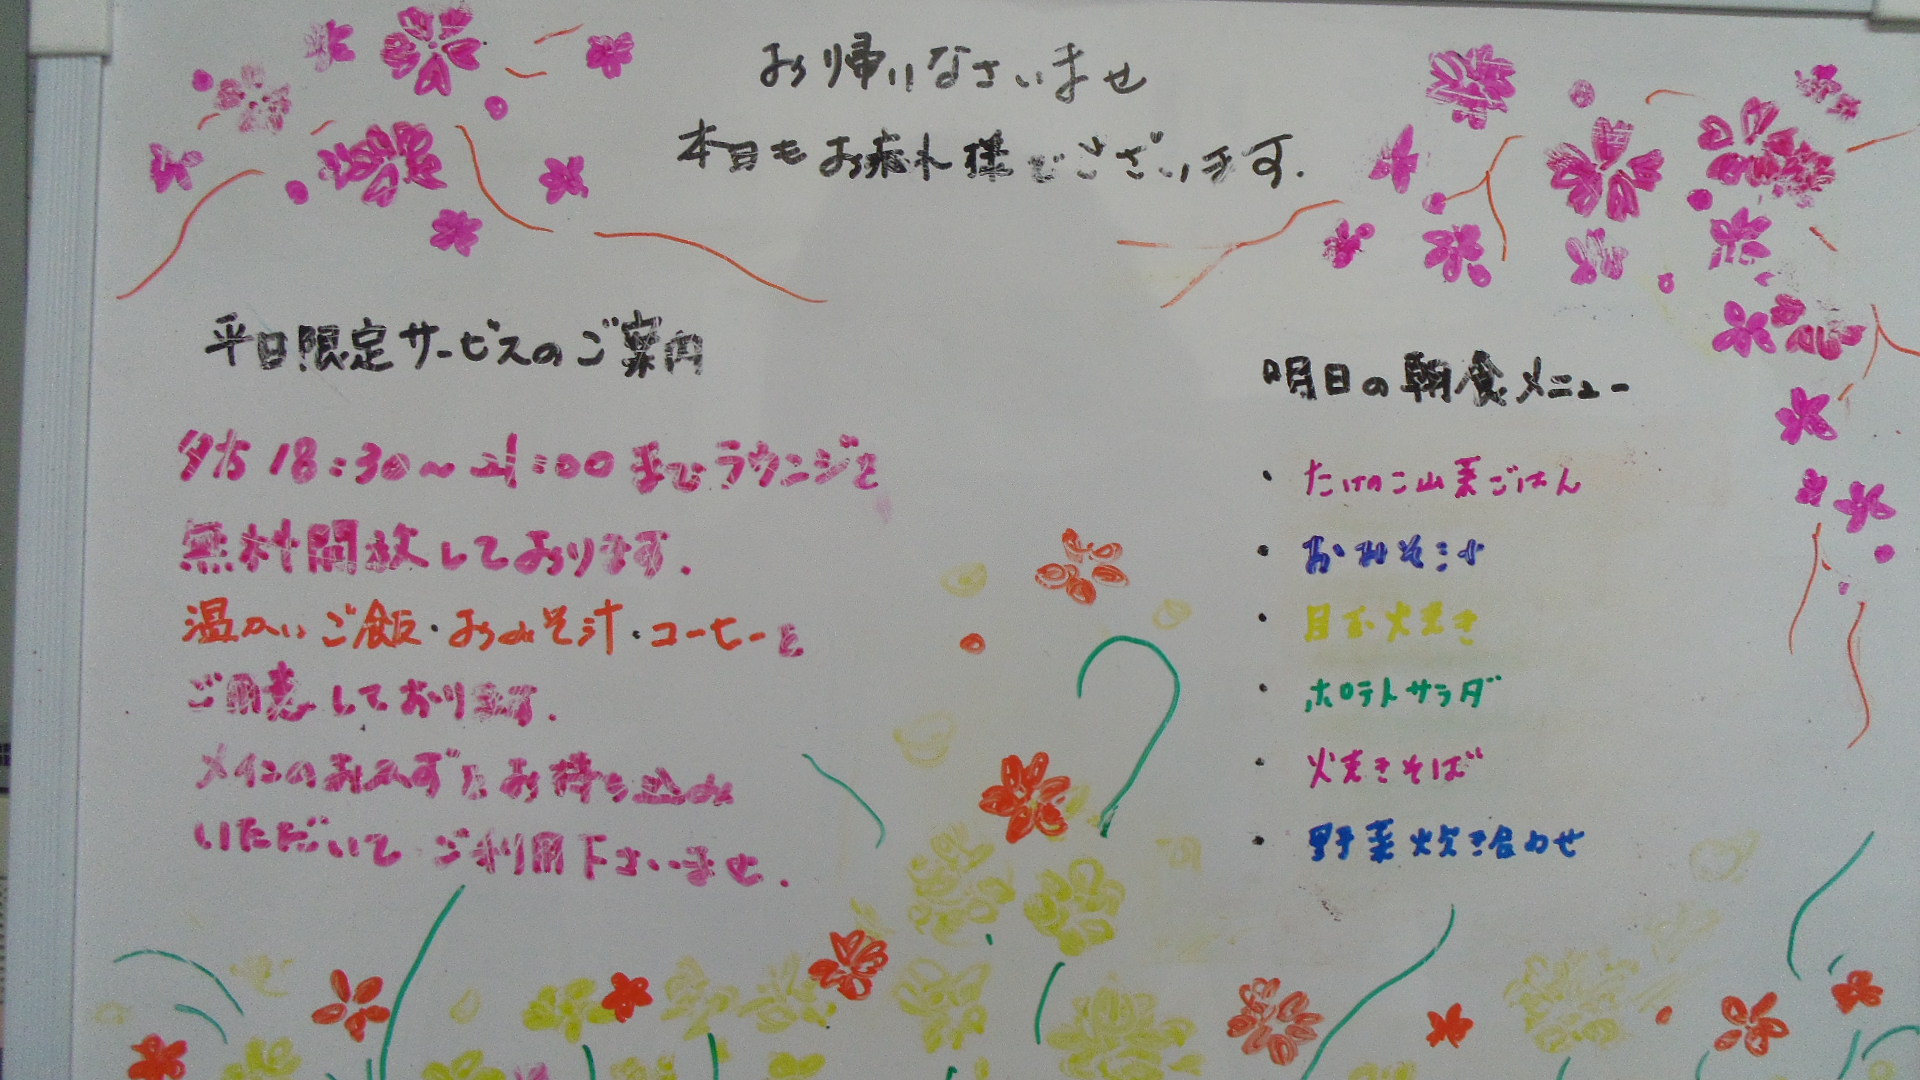 お帰りなさいませ
本日もお疲れ様でございます.
平日限定サービスのご案内
夕方 18:30～21:00までラウンジを
無料開放しております.
温かいご飯・おみそ汁・コーヒーを
ご用意しております.
メインのおかずをお持ち込み
いただいて ご利用下さいませ.
明日の朝食メニュー
・たけのこ山菜ごはん
・おみそ汁
・目玉焼き
・ポテトサラダ
・焼きそば
・野菜炊き合わせ